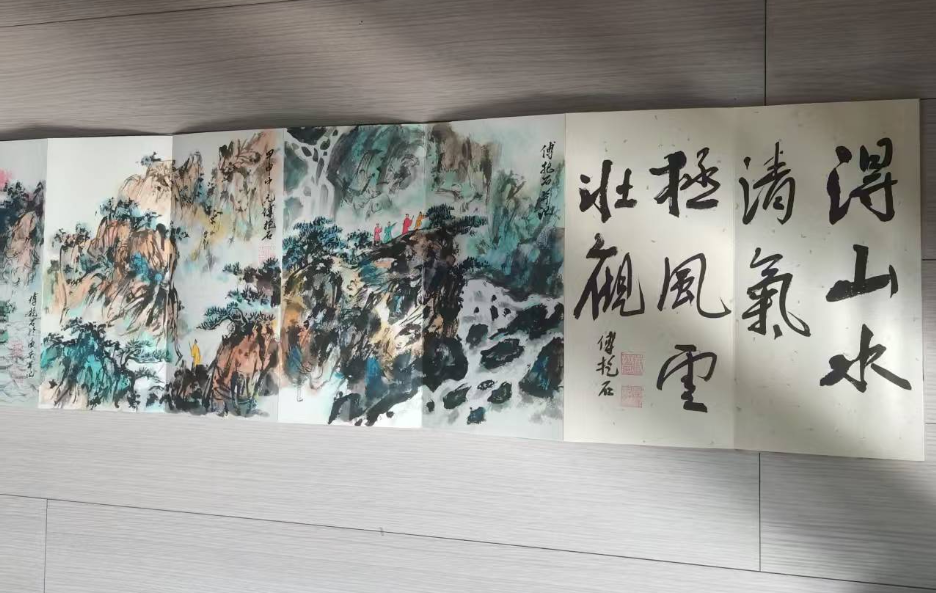 得山水
清氣
極風雲
壯觀
傅抱石
傅抱石
甲申 傅抱石
傅抱石